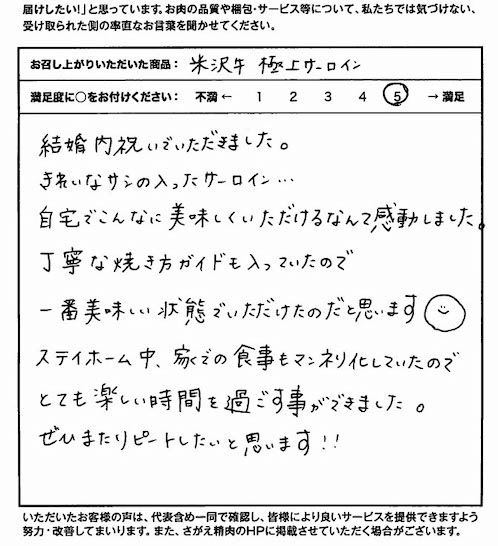 届けしたい！」と思っています。お肉の品質や梱包・サービス等について、私たちでは気づけない、
受け取られた側の率直なお言葉を聞かせてください。
お召し上がりいただいた商品： 米沢牛 極上サーロイン
満足度に○をお付けください： 不満 ← 1 2 3 4 5 → 満足
結婚内祝いでいただきました。
きれいなサシの入ったサーロイン…
自宅でこんなに美味しくいただけるなんて感動しました。
丁寧な焼き方ガイドも入っていたので
一番美味しい状態でいただけたのだと思います
ステイホーム中、家での食事もマンネリ化していたので
とても楽しい時間を過ごす事ができました。
ぜひまたリピートしたいと思います！！
いただいたお客様の声は、代表含め一同で確認し、皆様により良いサービスを提供できますよう
努力・改善してまいります。また、さがえ精肉のHPに掲載させていただく場合がございます。